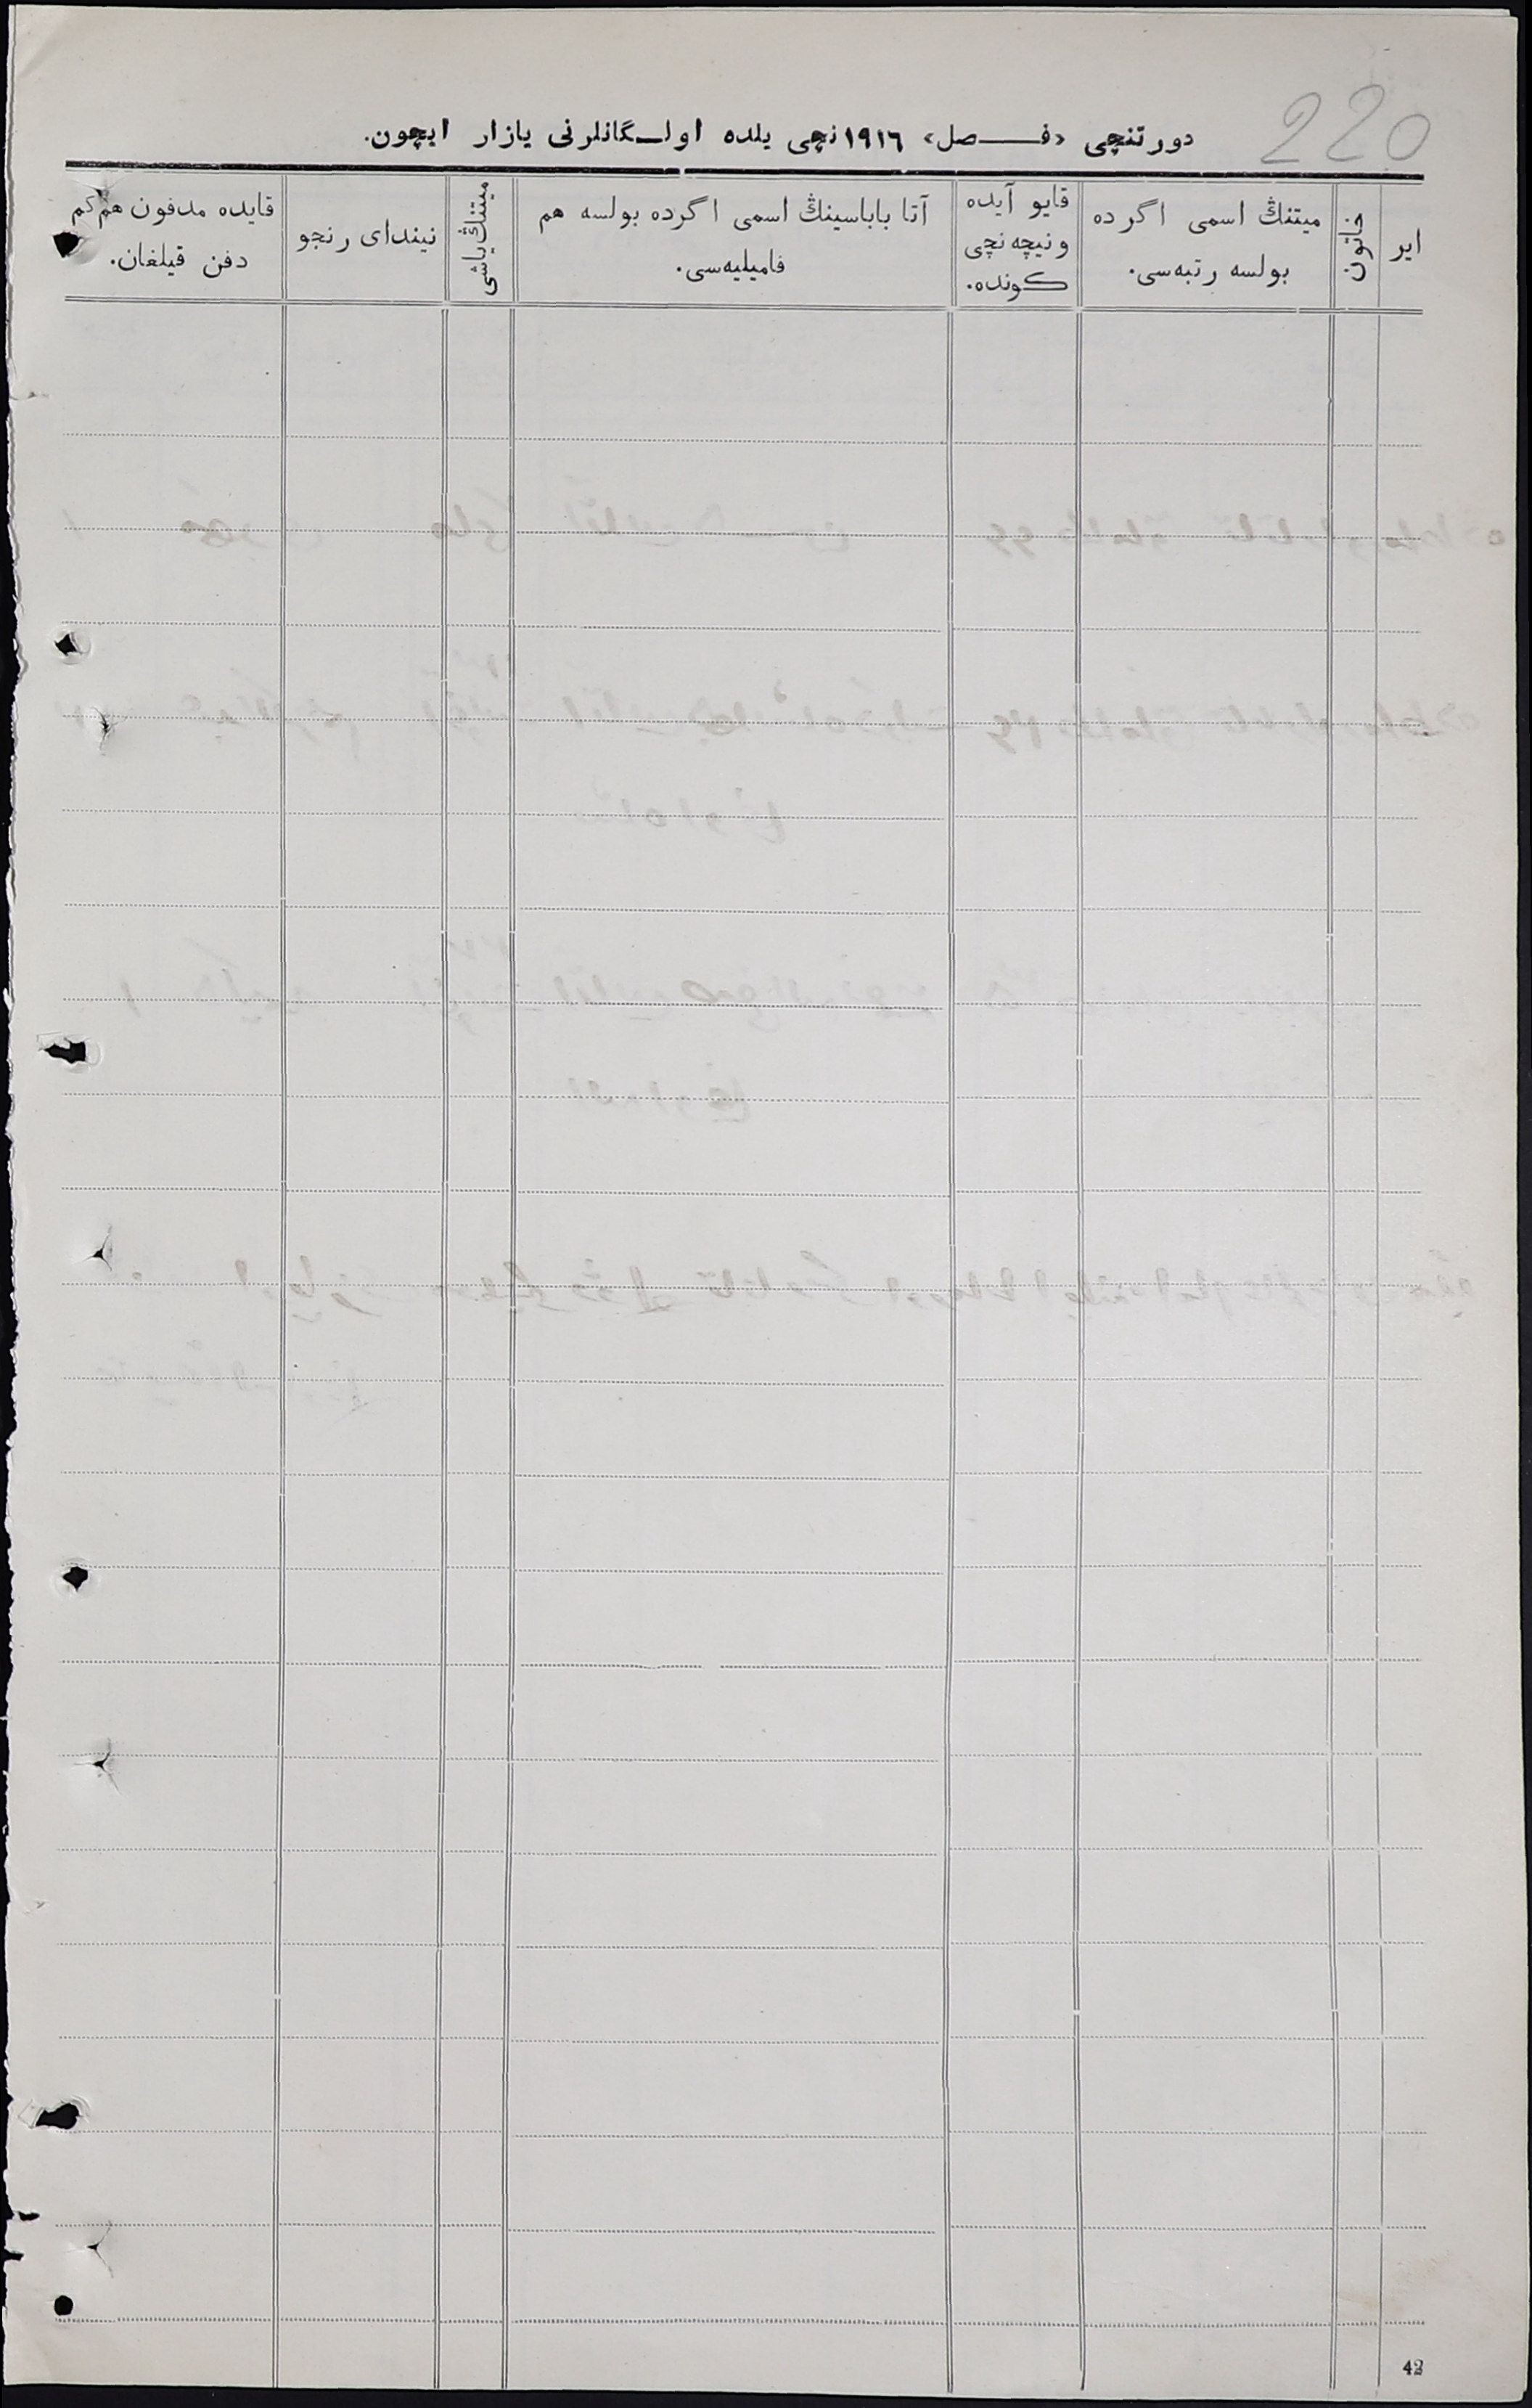 220
دورتنچی «فـــصل» ١٩١٦نچی یلده اولـگانلرنی یازار ایچون.
ایر
خاتون
میتنڭ اسمی اگرده
بولسه رتبه‌سی.
قایو آیده
ونیچه نچی
کونده.
آتا باباسینڭ اسمی اگرده بولسه هم
فامیلیه‌سی.
میتنڭ یاشی
نیندای رنجو
قایده مدفون هم کم
دفن قیلغان.
42